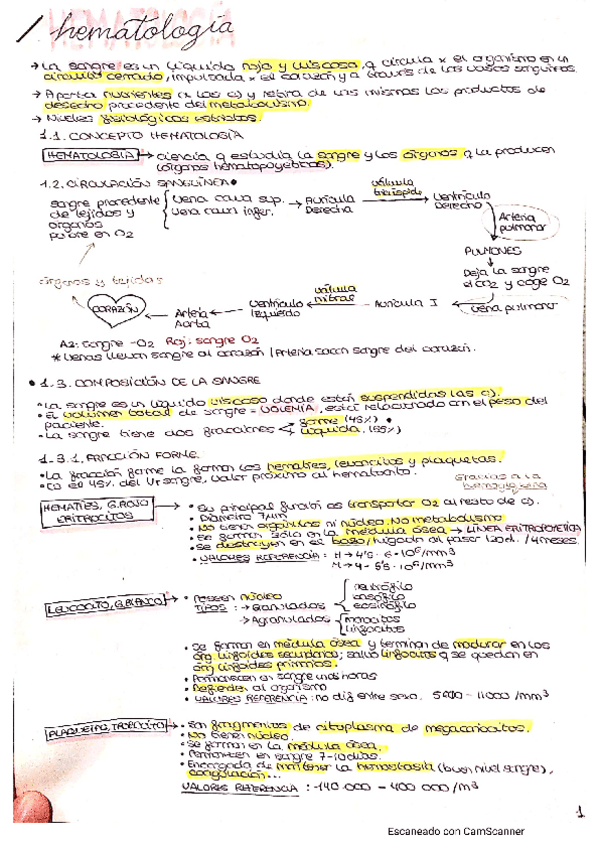 / hematología
→ La sangre es un líquido rojo y viscoso, q circula x el organismo en un
circuito cerrado, impulsada x el corazón y a través de los vasos sanguíneos.
→ Aporta nutrientes a las c) y retira de las mismas los productos de
desecho procedente del metabolismo.
→ Niveles fisiológicos estables.
1.1. CONCEPTO HEMATOLOGÍA
HEMATOLOGIA → ciencia q estudia la sangre y los órganos q la producen
(órganos hematopoyéticos).
1.2. CIRCULACIÓN SANGUÍNEA
sangre procedente de tejidos y organos pobre en O2
vena cava sup.
vena cava infer.
→ Aurícula Derecha
válvula tricúspide
Ventrículo Derecho
Arteria pulmonar
PULMONES
Deja la sangre el CO2 y coge O2
vena pulmonar
Aurícula I
válvula mitral
Ventrículo Izquierdo
Arteria Aorta
CORAZÓN
órganos y tejidos
Az: sangre -O2 Roj: sangre O2
* Venas llevan sangre al corazón / Arteria sacan sangre del corazón.
• 1.3. COMPOSICIÓN DE LA SANGRE
• La sangre es un líquido viscoso donde están suspendidas las c).
• El volumen total de sangre = VOLEMIA, está relacionado con el peso del
paciente.
• La sangre tiene dos fracciones
forme (45%)
líquida. (55%)
1.3.1. FRACCIÓN FORME.
• La fracción forme la forman los hematíes, leucocitos y plaquetas.
• Es el 45% del Vt sangre, valor próximo al hematocrito.
Gracias a la hemoglobina
HEMATIES, G.ROJO ERITROCITOS
• Su principal función es transportar O2 al resto de c).
• Diámetro 7µm
• No tienen orgánulos ni núcleo. No metabolismo
• Se forman sólo en la médula ósea → LÍNEA ERITROPOYETICA
• Se destruyen en el bazo/hígado al pasar 120d. /4meses.
• VALORES REFERENCIA: H → 4'5 - 6·10⁶/mm³
M → 4 - 5'5·10⁶/mm³
LEUCOCITO, G.BLANCO
• Poseen núcleo
TIPOS: → Granulados
neutrófilo
basófilo
eosinófilo
→ Agranulados
monocitos
linfocitos
• Se forman en médula ósea y terminan de madurar en los
org linfoides secundarios; salvo linfocitos q se quedan en
org linfoides primarios.
• Permanecen en sangre unas horas
• Defienden al organismo
• VALORES REFERENCIA: no dif entre sexo. 5000 - 11000 /mm³
PLAQUETAS, TROMBOCITO
• Son fragmentos de citoplasma de megacariocitos.
• No tienen núcleo.
• Se forman en la médula ósea.
• Permanecen en sangre 7-10 días.
• Encargada de mantener la hemostasia (buen nivel sangre),
coagulación...
VALORES REFERENCIA: 140 000 - 400 000 /m³
1
Escaneado con CamScanner